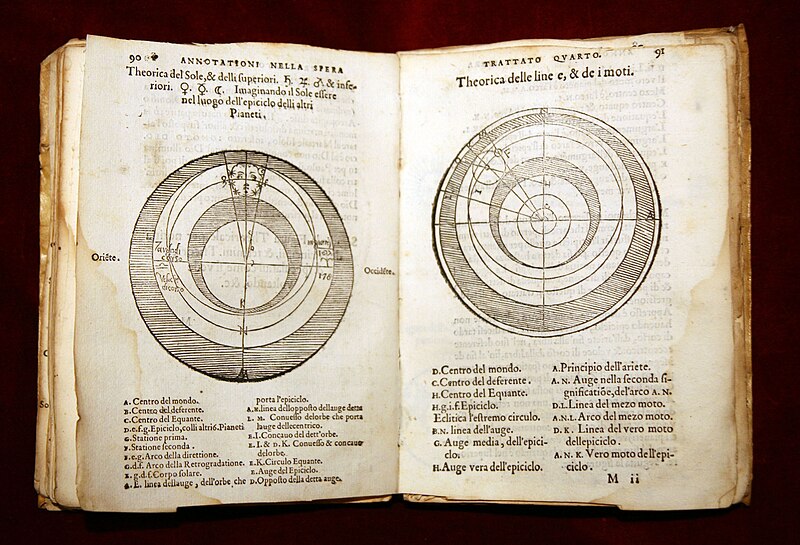 90
ANNOTATIONI NELLA SFERA
Theorica del Sole, & delli superiori. ♄ ♃ ♂ & infe-
riori. ♀. ☿. ☾. Imaginando il Sole essere
nel luogo dell'epiciclo delli altri
Pianeti.
Oriẽte.
Occidẽte.
A. Centro del mondo.
B. Centro del deferente.
C. Centro del Equante.
D.e.f.g. Epiciclo, colli altri 6. Pianeti
G. Statione prima.
F. Statione seconda.
E.e.g. Arco della direttione.
G.d.f. Arco della Retrogradatione.
E.g.d.f. Corpo solare.
A.E. linea dellauge, dell'orbe, che
porta l'epiciclo.
A.M. linea dellopposto dellauge detta
L. M. Conuesso delorbe che porta
lauge dellecentrico.
E.I. Concauo del dett'orbe.
E.I. & D.K. Conuesso & concauo
delorbe.
E.K. Circulo Equante.
E. Auge del Epiciclo.
D. Opposto della detta auge.
TRATTATO QVARTO.
91
Theorica delle line e, & de i moti.
D. Centro del mondo.
C. Centro del deferente.
H. Centro del Equante.
H.g.i.f. Epiciclo.
Eclitica l'estremo circulo.
B.N. linea dell'auge.
G. Auge media, dell'epici-
clo.
H. Auge vera dell'epiciclo.
A. Principio dell'ariete.
A. N. Auge nella seconda si-
gnificatiõe, del'arco A. N.
D.L. Linea del mezo moto.
A.N.L. Arco del mezo moto.
D. K. Linea del vero moto
dellepiciclo.
A. N. K. Vero moto dell'epi-
ciclo.
M ii